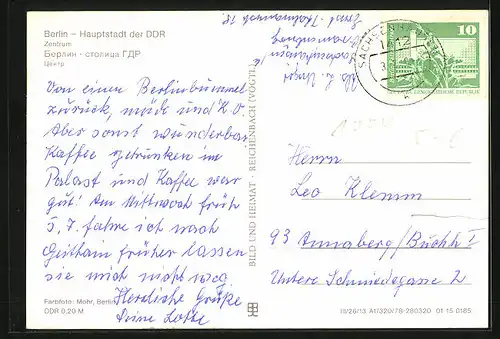 Berlin – Hauptstadt der DDR
Zentrum
Берлин · столица ГДР
Центр
Von einem Berlinbummel
zurück, müde und K.O.
Aber sonst wunderbar
Kaffee getrunken im
Palast und Kaffee war
gut! Am Mittwoch früh
5, 7. fahre ich nach
Geithain früher lassen
sie mich nicht weg
Herzliche Grüße
Deine Lotte
Farbfoto: Mohr, Berlin
DDR 0,20 M
BILD UND HEIMAT · REICHENBACH (VOGTL)
SACHSENHAUSEN
10
DEUTSCHE DEMOKRATISCHE REPUBLIK
Herrn
Leo Klemm
93 Annaberg/Buchh I
Untere Schmiedegasse 2
III/26/13 A1/320/78-280320 01 15 0185